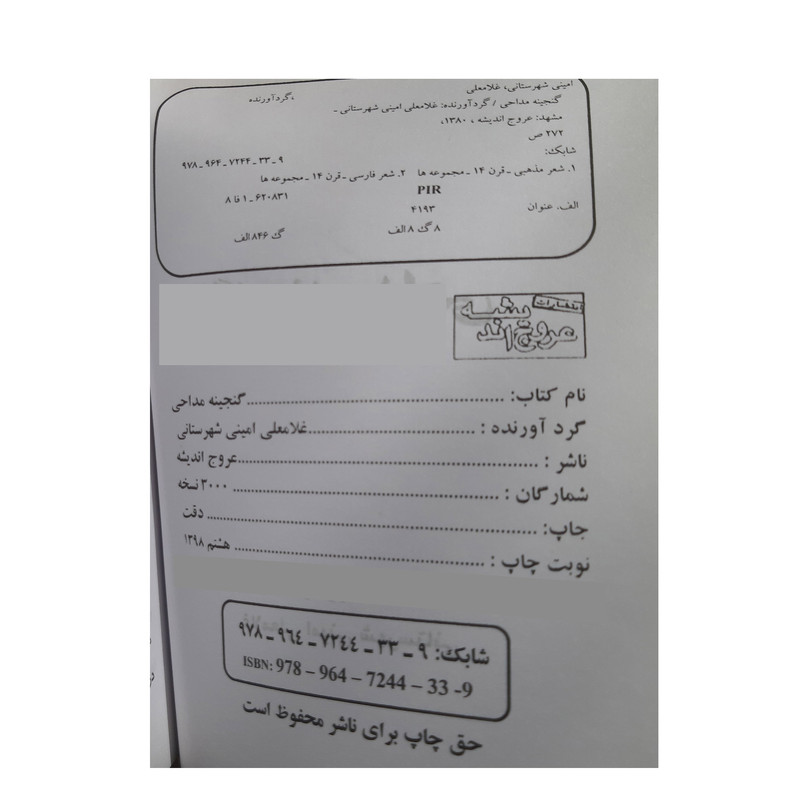 امینی شهرستانی، غلامعلی ،گردآورنده
گنجینه مداحی / گردآورنده: غلامعلی امینی شهرستانی ـ
مشهد: عروج اندیشه ، ۱۳۸۰،
۲۷۲ ص
شابک: ۹ ـ ۳۳ ـ ۷۲۴۴ ـ ۹۶۴ ـ ۹۷۸
۱. شعر مذهبی ـ قرن ۱۴ ـ مجموعه ها ۲. شعر فارسی ـ قرن ۱۴ ـ مجموعه ها
PIR ۶۲۰۸۳۱ ـ ۱ فا ۸
الف. عنوان ۴۱۹۳
۸ گ ۸ الف گ ۸۴۶ الف
انتشارات
عروج اندیشه
نام کتاب: ........ گنجینه مداحی
گرد آورنده : ........ غلامعلی امینی شهرستانی
ناشر : ........ عروج اندیشه
شمارگان : ........ ۳۰۰۰ نسخه
چاپ: ........ دقت
نوبت چاپ : ........ هشتم ۱۳۹۸
شابک: ۹ ـ ۳۳ ـ ۷۲٤٤ ـ ۹٦٤ ـ ۹۷۸
ISBN: 978 – 964 – 7244 – 33 -9
حق چاپ برای ناشر محفوظ است